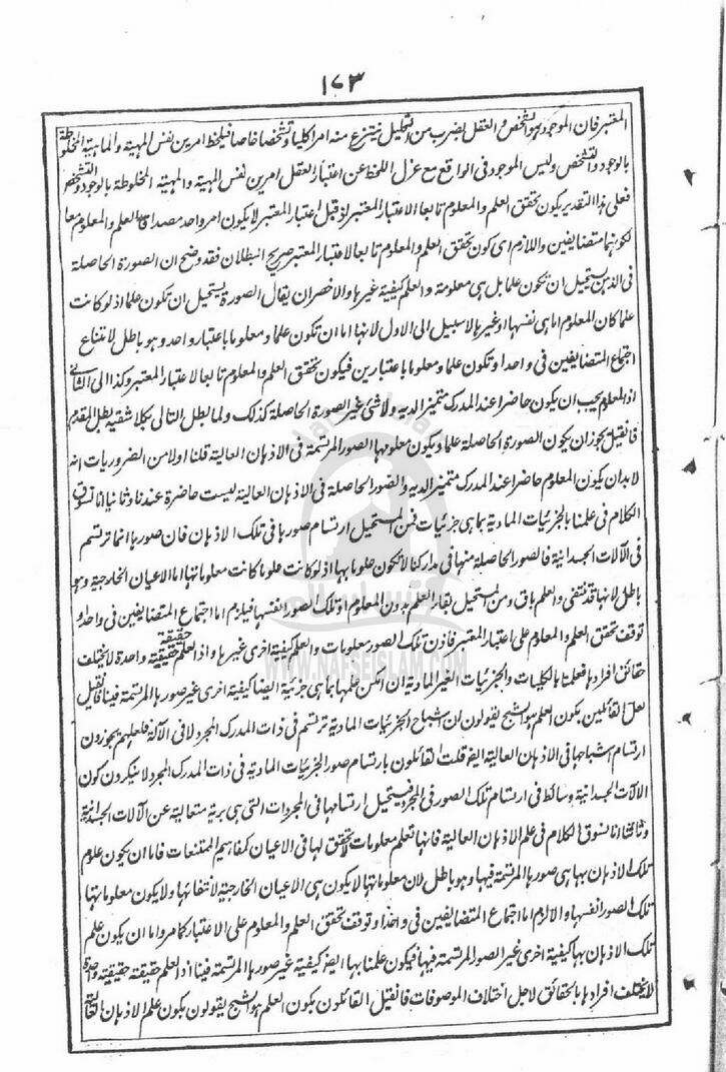 ١٧٣
المعتبر فان الموجود هو الشخص والعقل بضرب من التحليل ينتزع منه امرا كليا وتشخصا خاصا فيلحظ امرين نفس المهية والماهية المخلوطة
بالوجود والتشخص وليس الموجود فى الواقع مع عزل اللحظ عن اعتبار العقل امرين نفس المهية والمهية المخلوطة بالوجود والتشخص
فعلى هذا التقدير يكون تحقق العلم والمعلوم تابعا لاعتبار المعتبر اذ قبل اعتبار المعتبر لا يكون امر واحد مصداقا للعلم والمعلوم معا
لكونهما متضايفين واللازم اى كون تحقق العلم والمعلوم تابعا لاعتبار المعتبر صريح البطلان فقد وضح ان الصورة الحاصلة
فى الذهن يستحيل ان تكون علما بل هى معلومة والعلم كيفية غيرها والاخصر ان يقال الصورة يستحيل ان تكون علما اذ لو كانت
علما كان المعلوم اما هى نفسها او غيرها لا سبيل الى الاول لانها اما ان تكون علما ومعلوما باعتبار واحد وهو باطل لامتناع
اجتماع المتضايفين فى واحد او تكون علما ومعلوما باعتبارين فيكون تحقق العلم والمعلوم تابعا لاعتبار المعتبر وكذا الى الثانى
اذ المعلوم يجب ان يكون حاضرا عند المدرك متميزا لديه ولا شئ غير الصورة الحاصلة كذلك ولما بطل التالى بكلا شقيه بطل المقدم
فان قيل يجوز ان يكون الصورة الحاصلة علما ويكون معلومها الصور المرتسمة فى الاذهان العالية قلنا اولا من الضروريات انه
لا بد ان يكون المعلوم حاضرا عند المدرك متميزا لديه والصور الحاصلة فى الاذهان العالية ليست حاضرة عندنا وثانيا انا نسوق
الكلام فى علمنا بالجزئيات المادية بما هى جزئيات فمن المستحيل ارتسام صورها فى تلك الاذهان فان صورها انما ترتسم
فى الآلات الجسدانية فالصور الحاصلة منها فى مداركنا لا تكون علوما بها اذ لو كانت علوما كانت معلوماتها اما الاعيان الخارجية وهو
باطل لانها قد تنتفى والعلم باق ومن المستحيل بقاء العلم بدون المعلوم او تلك الصور انفسها فيلزم اما اجتماع المتضايفين فى واحد او
توقف تحقق العلم والمعلوم على اعتبار المعتبر فاذن تلك الصور معلومات والعلم كيفية اخرى غيرها واذ العلم حقيقة حقيقية واحدة لا يختلف
حقائق افرادها فعلمنا بالكليات والجزئيات الغير المادية ان امكن علمها بما هى جزئية ايضا كيفية اخرى غير صورها المرتسمة فينا فان قيل
لعل القائلين بكون العلم هو الشبح يقولون ان اشباح الجزئيات المادية ترتسم فى ذات المدرك المجرد لا فى الآلة فلعلهم يجوزون
ارتسام اشباحها فى الاذهان العالية ايضا قلت القائلون بارتسام صور الجزئيات المادية فى ذات المدرك المجرد لا ينكرون كون
الآلات الجسدانية وسائط فى ارتسام تلك الصور فى المجرد فيستحيل ارتسامها فى المجردات التى هى برية متعالية عن الآلات الجسدانية
وثالثا انا نسوق الكلام فى علم الاذهان العالية فانها تعلم معلومات لا تحقق لها فى الاعيان كمفاهيم الممتنعات فاما ان يكون علوم
تلك الاذهان بها هى صورها المرتسمة فيها وهو باطل لان معلوماتها لا يكون هى الاعيان الخارجية لانتفائها ولا يكون معلوماتها
تلك الصور انفسها والا لزم اما اجتماع المتضايفين فى واحد او توقف تحقق العلم والمعلوم على الاعتبار كما مر واما ان يكون علم
تلك الاذهان بها كيفية اخرى غير الصور المرتسمة فيها فيكون علمنا بها ايضا كيفية غير صورها المرتسمة فينا اذ العلم حقيقة حقيقية واحدة
لا يختلف افرادها بالحقائق لاجل اختلاف الموصوفات فان قيل القائلون بكون العلم هو الشبح يقولون بكون علم الاذهان العالية
WWW.NAFSEISLAM.COM